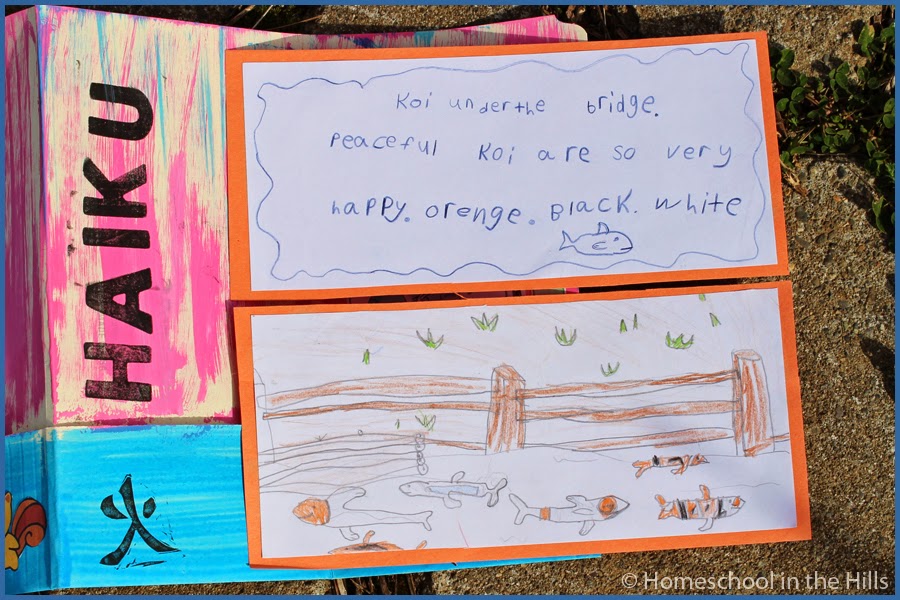 HAIKU
火
Koi under the bridge.
Peaceful Koi are so very
happy. orenge. Black. white
© Homeschool in the Hills